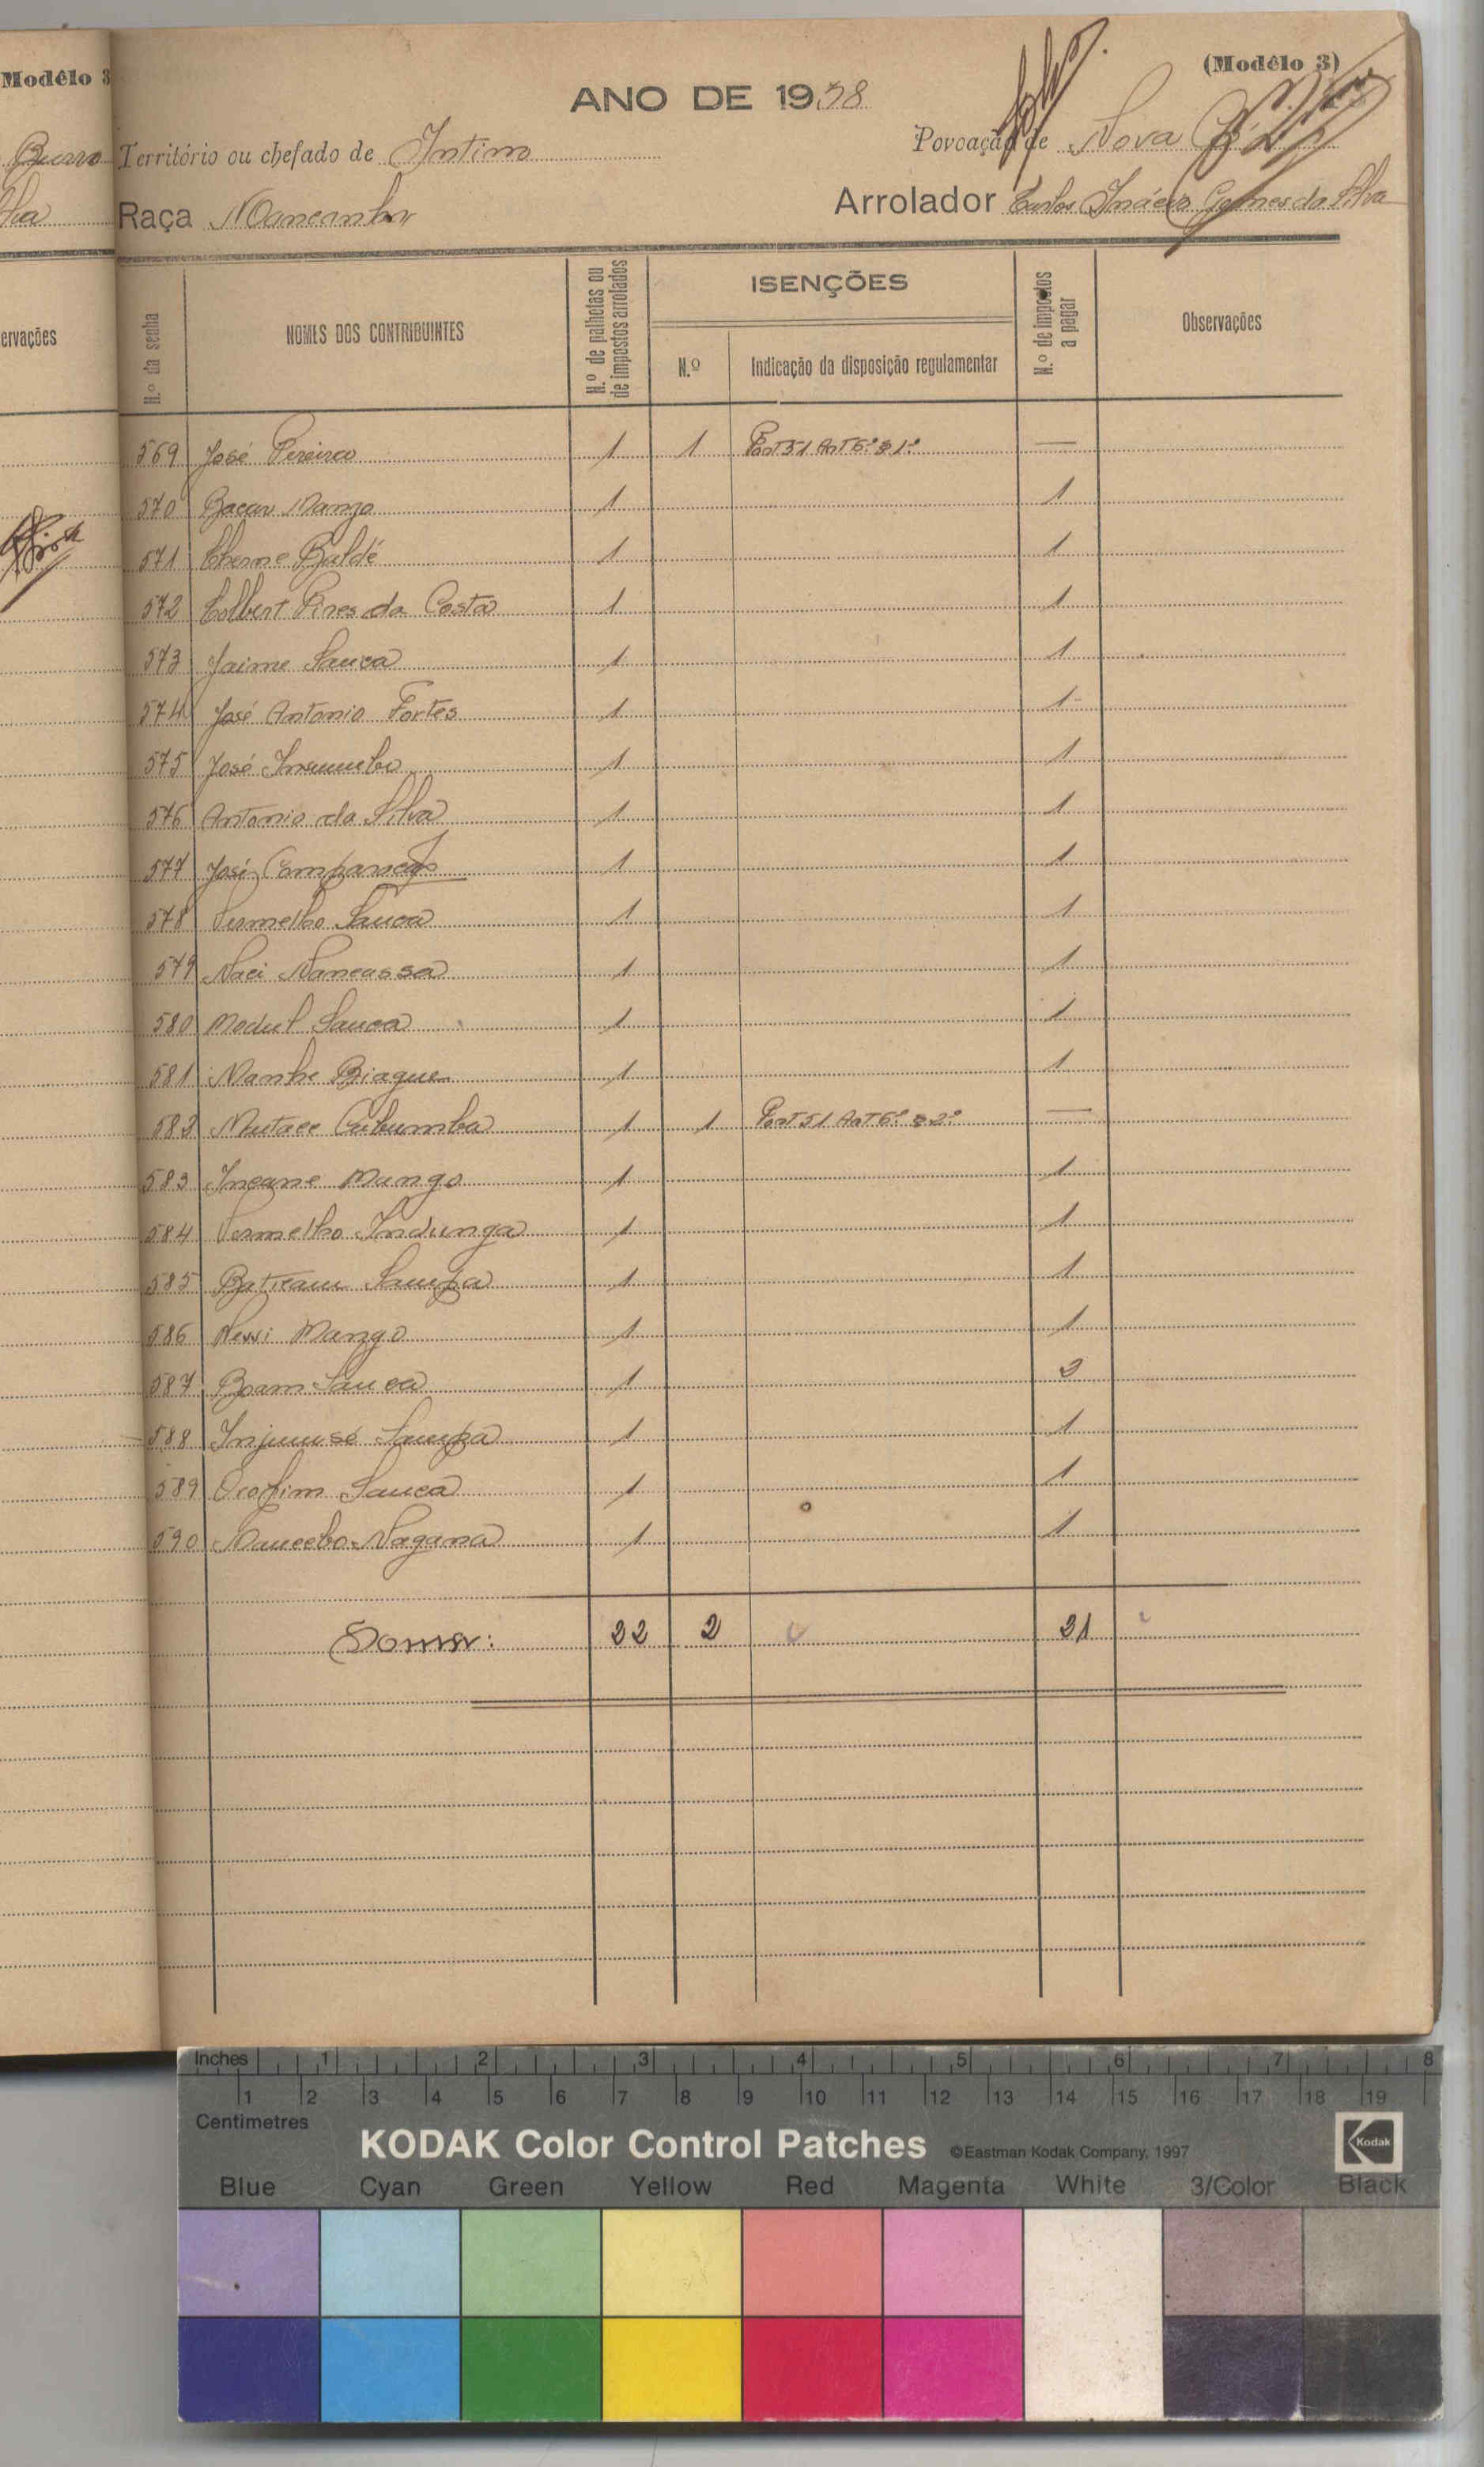 Modêlo 3
(Modêlo 3)
ANO DE 1938
Burro
Território ou chefado de Intim
Povoação de Nova
Raça Mancanha
Arrolador Carlos Inácio Gomes da Silva
ervações
N.º da senha
NOMES DOS CONTRIBUINTES
N.º de palhotas ou de impostos arrolados
ISENÇÕES
N.º
Indicação da disposição regulamentar
N.º de impostos a pagar
Observações
569 José Pereira 1 1 Port 51 Art 6.º § 1.º —
570 Bacar Mango 1 1
571 Cherne Baldé 1 1
572 Colbert Pires da Costa 1 1
573 Jaime Sanca 1 1
574 José Antonio Fortes 1 1
575 José 1 1
576 Antonio da Silva 1 1
577 José 1 1
578 Vermelho Sanca 1 1
579 Naci Nancassa 1 1
580 Modul Sanca 1 1
581 Nanhe Biague 1 1
582 Cubumba 1 1 Port 51 Art 6.º § 2.º —
583 Incane Mango 1 1
584 Vermelho Indunga 1 1
585 Sampa 1 1
586 Mango 1 1
587 Bram Sanca 1 2
588 Sampa 1 1
589 Orofim Sanca 1 1
590 Mancebo Nagana 1 1
Soma: 22 2 21
Inches 1 2 3 4 5 6 7 8
1 2 3 4 5 6 7 8 9 10 11 12 13 14 15 16 17 18 19
Centimetres
KODAK Color Control Patches ©Eastman Kodak Company, 1997 Kodak
Blue Cyan Green Yellow Red Magenta White 3/Color Black